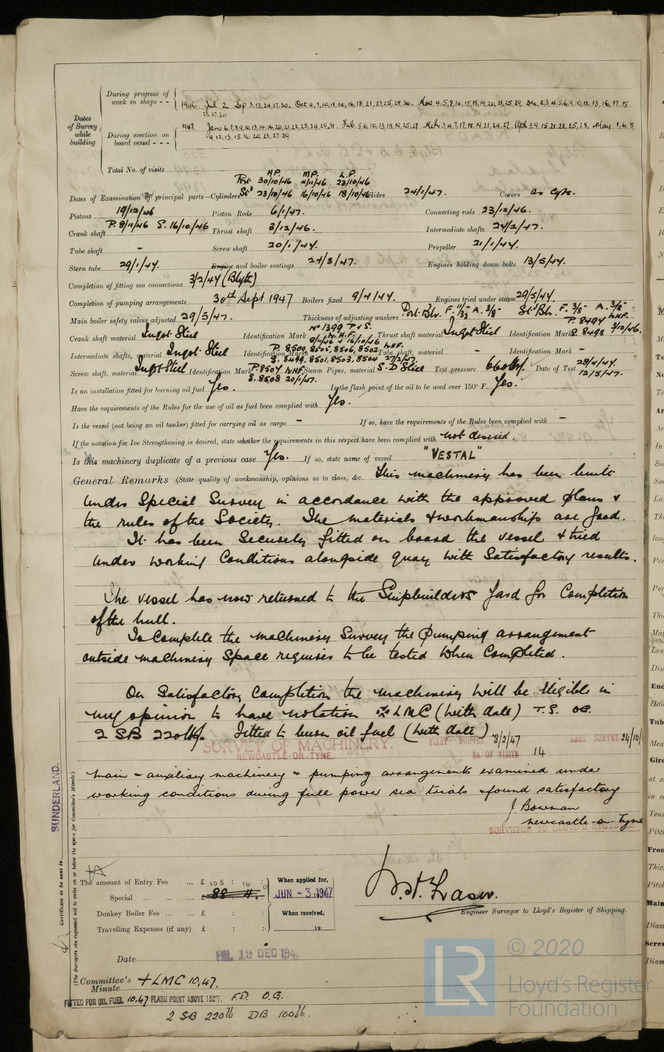 Dates of Survey while building
During progress of work in shops - -
1946. Jul 2. Sep 3,13,24,27,30. Oct
During erection on board vessel - - -
1947. Jan
Total No. of visits
H.P. M.P. L.P.
Prt. 30/10/46 4/11/46 23/10/46
Dates of Examination of principal parts—Cylinders St. 23/10/46 16/10/46 18/10/46 Slides 24/1/47. Covers as cyls.
Pistons 19/12/46 Piston Rods 6/1/47. Connecting rods 23/12/46.
Crank shaft P. 8/11/46 S. 16/10/46 Thrust shaft 3/12/46. Intermediate shafts 24/2/47.
Tube shaft - Screw shaft 20/1/47. Propeller 21/1/47.
Stern tube 29/1/47. Engine and boiler seatings 24/3/47. Engines holding down bolts 13/5/47.
Completion of fitting sea connections 3/2/47 (Blyth)
Completion of pumping arrangements 30th Sept 1947 Boilers fixed 9/4/47. Engines tried under steam 29/5/47.
Main boiler safety valves adjusted 29/5/47. Thickness of adjusting washers Prt. Blr. F. A. 3/8" St. Blr. F. 3/8" A. 3/8"
Crank shaft material Ingot Steel Identification Mark No 1399 P & S. Thrust shaft material Ingot Steel Identification Mark P. 8497 S. 8498 3/12/46.
Intermediate shafts, material Ingot Steel Identification Marks P. 8500, 8505, 8506, 8502 S. 8499, 8501, 8503, 8504 Tube shaft, material - Identification Mark -
Screw shaft, material Ingot Steel Identification Mark P. 8507 S. 8508 20/1/47. Steam Pipes, material S. D. Steel Test pressure 660 lbs. Date of Test 28/4/47. 12/5/47.
Is an installation fitted for burning oil fuel Yes. Is the flash point of the oil to be used over 150° F. Yes.
Have the requirements of the Rules for the use of oil as fuel been complied with Yes.
Is the vessel (not being an oil tanker) fitted for carrying oil as cargo - If so, have the requirements of the Rules been complied with -
If the notation for Ice Strengthening is desired, state whether the requirements in this respect have been complied with not desired.
Is this machinery duplicate of a previous case Yes. If so, state name of vessel "VESTAL"
General Remarks (State quality of workmanship, opinions as to class, &c. This machinery has been built
under Special Survey in accordance with the approved plans &
the rules of the Society. The materials & workmanship are good.
It has been securely fitted on board the vessel & tried
under working conditions alongside quay with satisfactory results.
The vessel has now returned to the Shipbuilders Yard for completion
of the hull.
To complete the machinery survey the pumping arrangement
outside machinery space requires to be tested when completed.
On satisfactory completion the machinery will be eligible in
my opinion to have notation LMC (with date) T.S. OG.
2 SB 220 lbs. Fitted to burn oil fuel (with date)
SURVEY OF MACHINERY.
NEWCASTLE-ON-TYNE.
FIRST SURVEY 8/2/47 LAST SURVEY 24/10/
No OF VISITS 14
Main & auxiliary machinery & pumping arrangements examined under
working conditions during full power sea trials & found satisfactory
J. Bowman
Newcastle-on-Tyne
SURVEYOR TO LLOYD'S REGISTER
SUNDERLAND.
Certificate to be sent to
(The Surveyors are requested not to write on or below the space for Committee's Minute.)
The amount of Entry Fee ... £ 105 : 16 :
Special ... ... £ 88 : 4 :
Donkey Boiler Fee ... £ : :
Travelling Expenses (if any) £ : :
When applied for,
JUN - 3. 1947
When received,
19
Engineer Surveyor to Lloyd's Register of Shipping.
Date FRI. 19 DEC 194
Committee's Minute + LMC 10,47.
FITTED FOR OIL FUEL 10.47 FLASH POINT ABOVE 150°F. F.D. O.G.
2 SB 220 lb DB 100 lb.
LR
© 2020
Lloyd's Register
Foundation